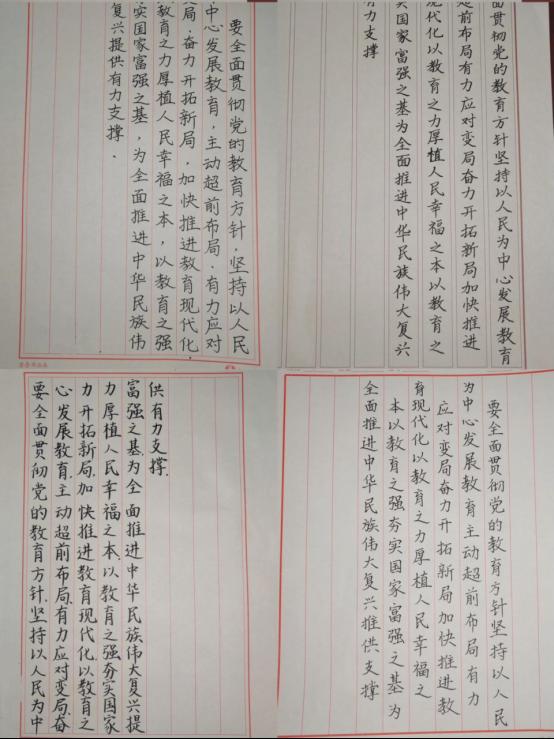 要全面贯彻党的教育方针,坚持以人民
中心发展教育,主动超前布局.有力应对
局.奋力开拓新局,加快推进教育现代化,
教育之力厚植人民幸福之本,以教育之强
实国家富强之基,为全面推进中华民族伟
复兴提供有力支撑.
面贯彻党的教育方针坚持以人民为中心发展教育
超前布局有力应对变局奋力开拓新局加快推进
现代化以教育之力厚植人民幸福之本以教育之
实国家富强之基为全面推进中华民族伟大复兴
有力支撑
要全面贯彻党的教育方针.坚持以人民为中
心发展教育.主动超前布局.有力应对变局.奋
力开拓新局.加快推进教育现代化.以教育之
力厚植人民幸福之本.以教育之强夯实国家
富强之基.为全面推进中华民族伟大复兴提
供有力支撑.
要全面贯彻党的教育方针坚持以人民
为中心发展教育主动超前布局有力
应对变局奋力开拓新局加快推进教
育现代化以教育之力厚植人民幸福之
本以教育之强夯实国家富强之基为
全面推进中华民族伟大复兴推供支撑